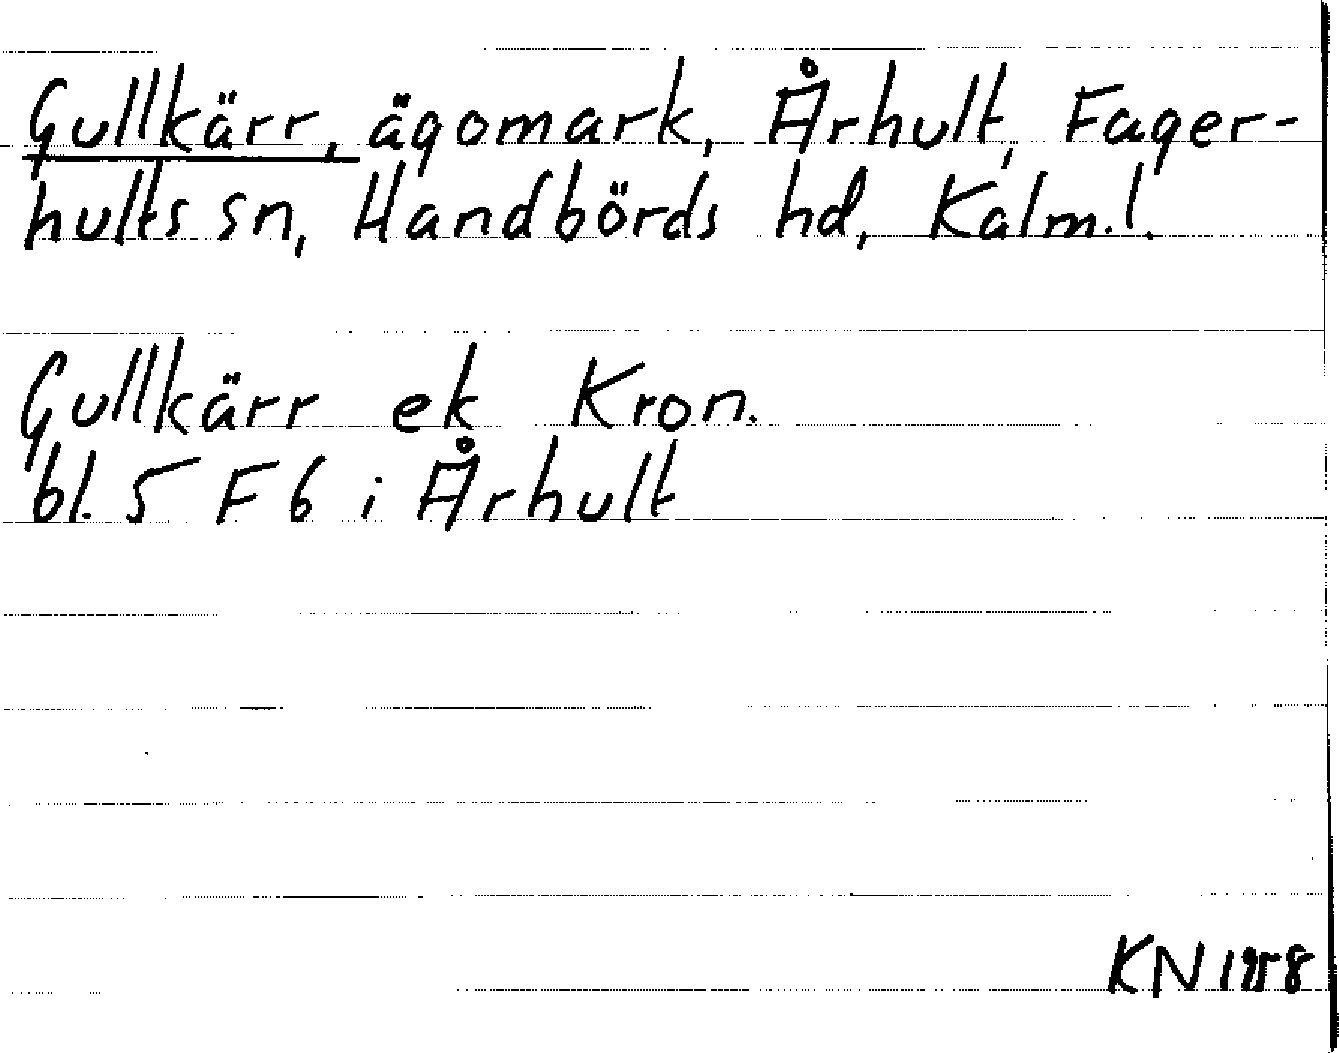 Gullkärr, ägomark, Århult, Fager-
hults sn, Handbörds hd, Kalm.l.
Gullkärr ek Kron.
bl. 5 F 6 i Århult
KN 1958